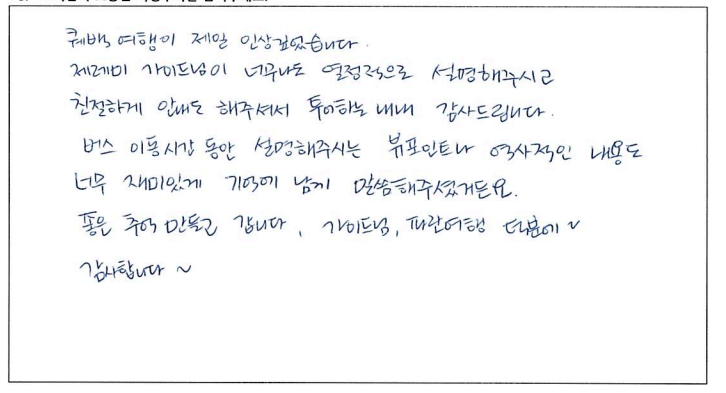 퀘벡 여행이 제일 인상깊었습니다.
제레미 가이드님이 너무나도 열정적으로 설명해주시고
친절하게 안내도 해주셔서 투어하는 내내 감사드립니다.
버스 이동시간 동안 설명해주시는 뷰포인트나 역사적인 내용도
너무 재미있게 기억에 남게 말씀해주셨거든요.
좋은 추억 만들고 갑니다, 가이드님, 파란여행 덕분에~
감사합니다~